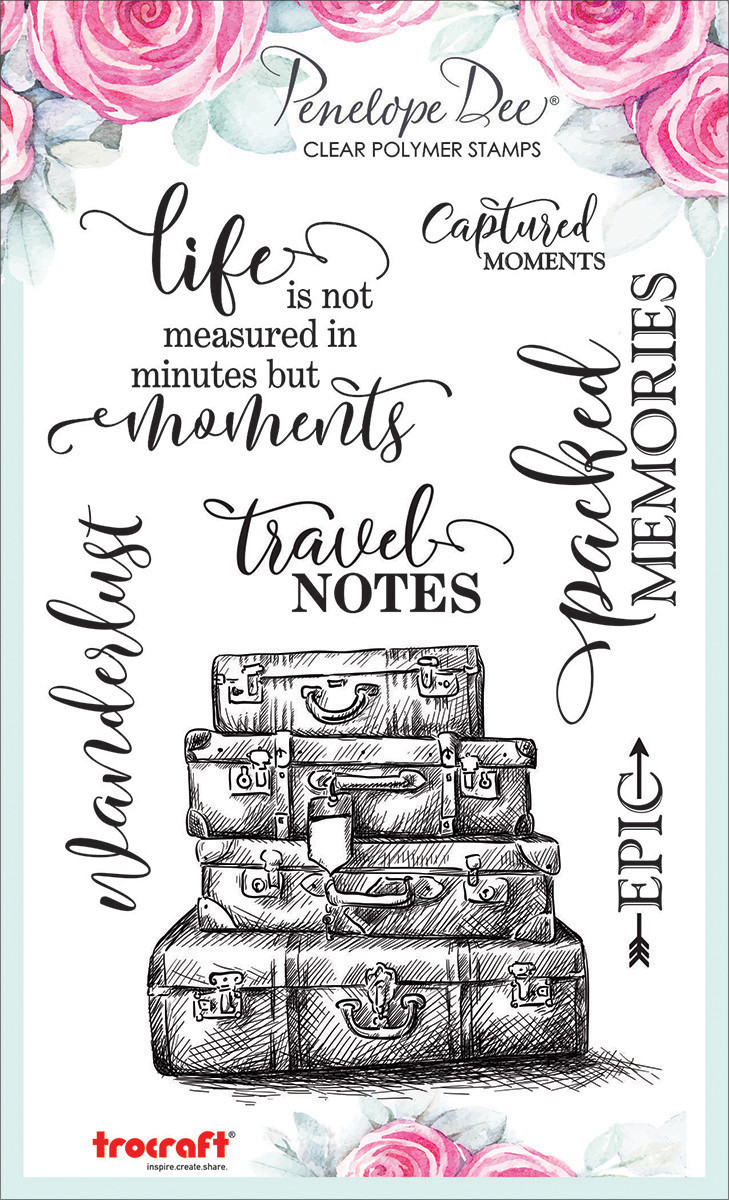 Penelope Dee®
CLEAR POLYMER STAMPS
life
is not
measured in
minutes but
moments
Captured
MOMENTS
packed
MEMORIES
travel
NOTES
Wanderlust
EPIC
trocraft®
inspire.create.share.